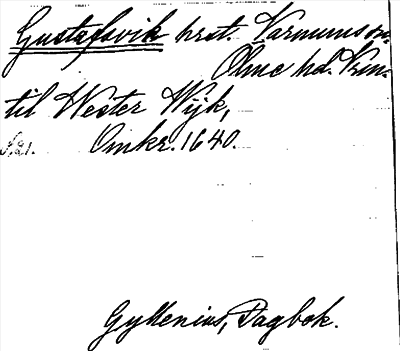 Gustafsvik hrst. Varnums sn.
Ölme hd. Vrm.
til Wester Wijk,
Omkr. 1640.
Gyllenius, Dagbok.